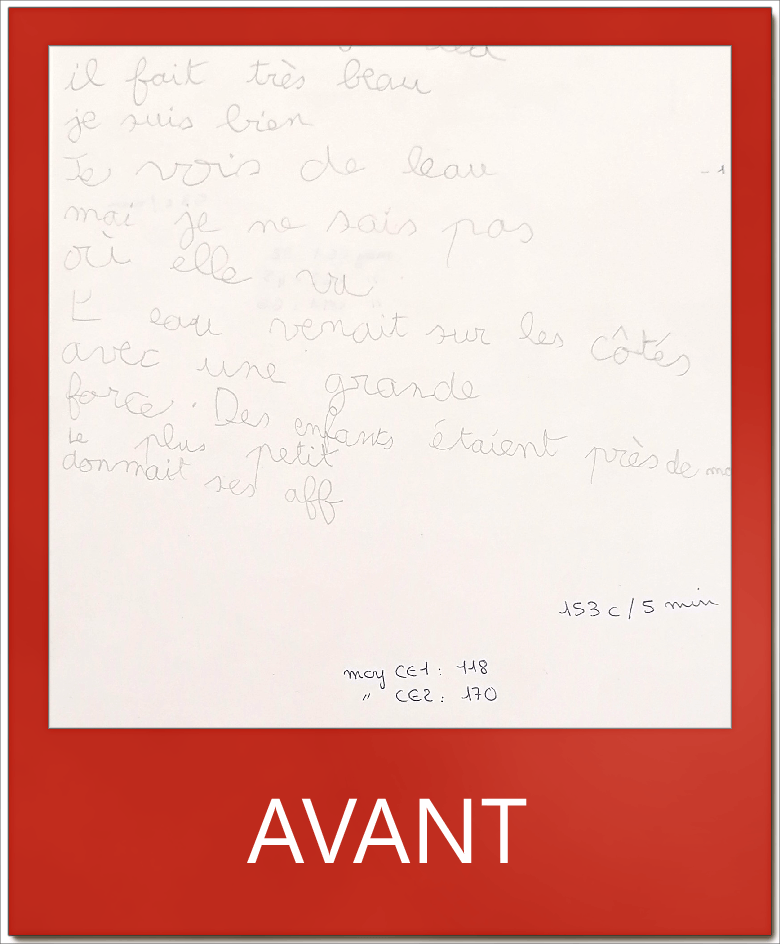 il fait très beau
je suis bien
Je vois de leau
- 1
mai je ne sais pas
où elle va
L eau venait sur les côtés
avec une grande
force. Des enfants étaient près de mo
Le plus petit
donmait ses aff
153 c / 5 min
moy CE1 : 118
" CE2 : 170
AVANT